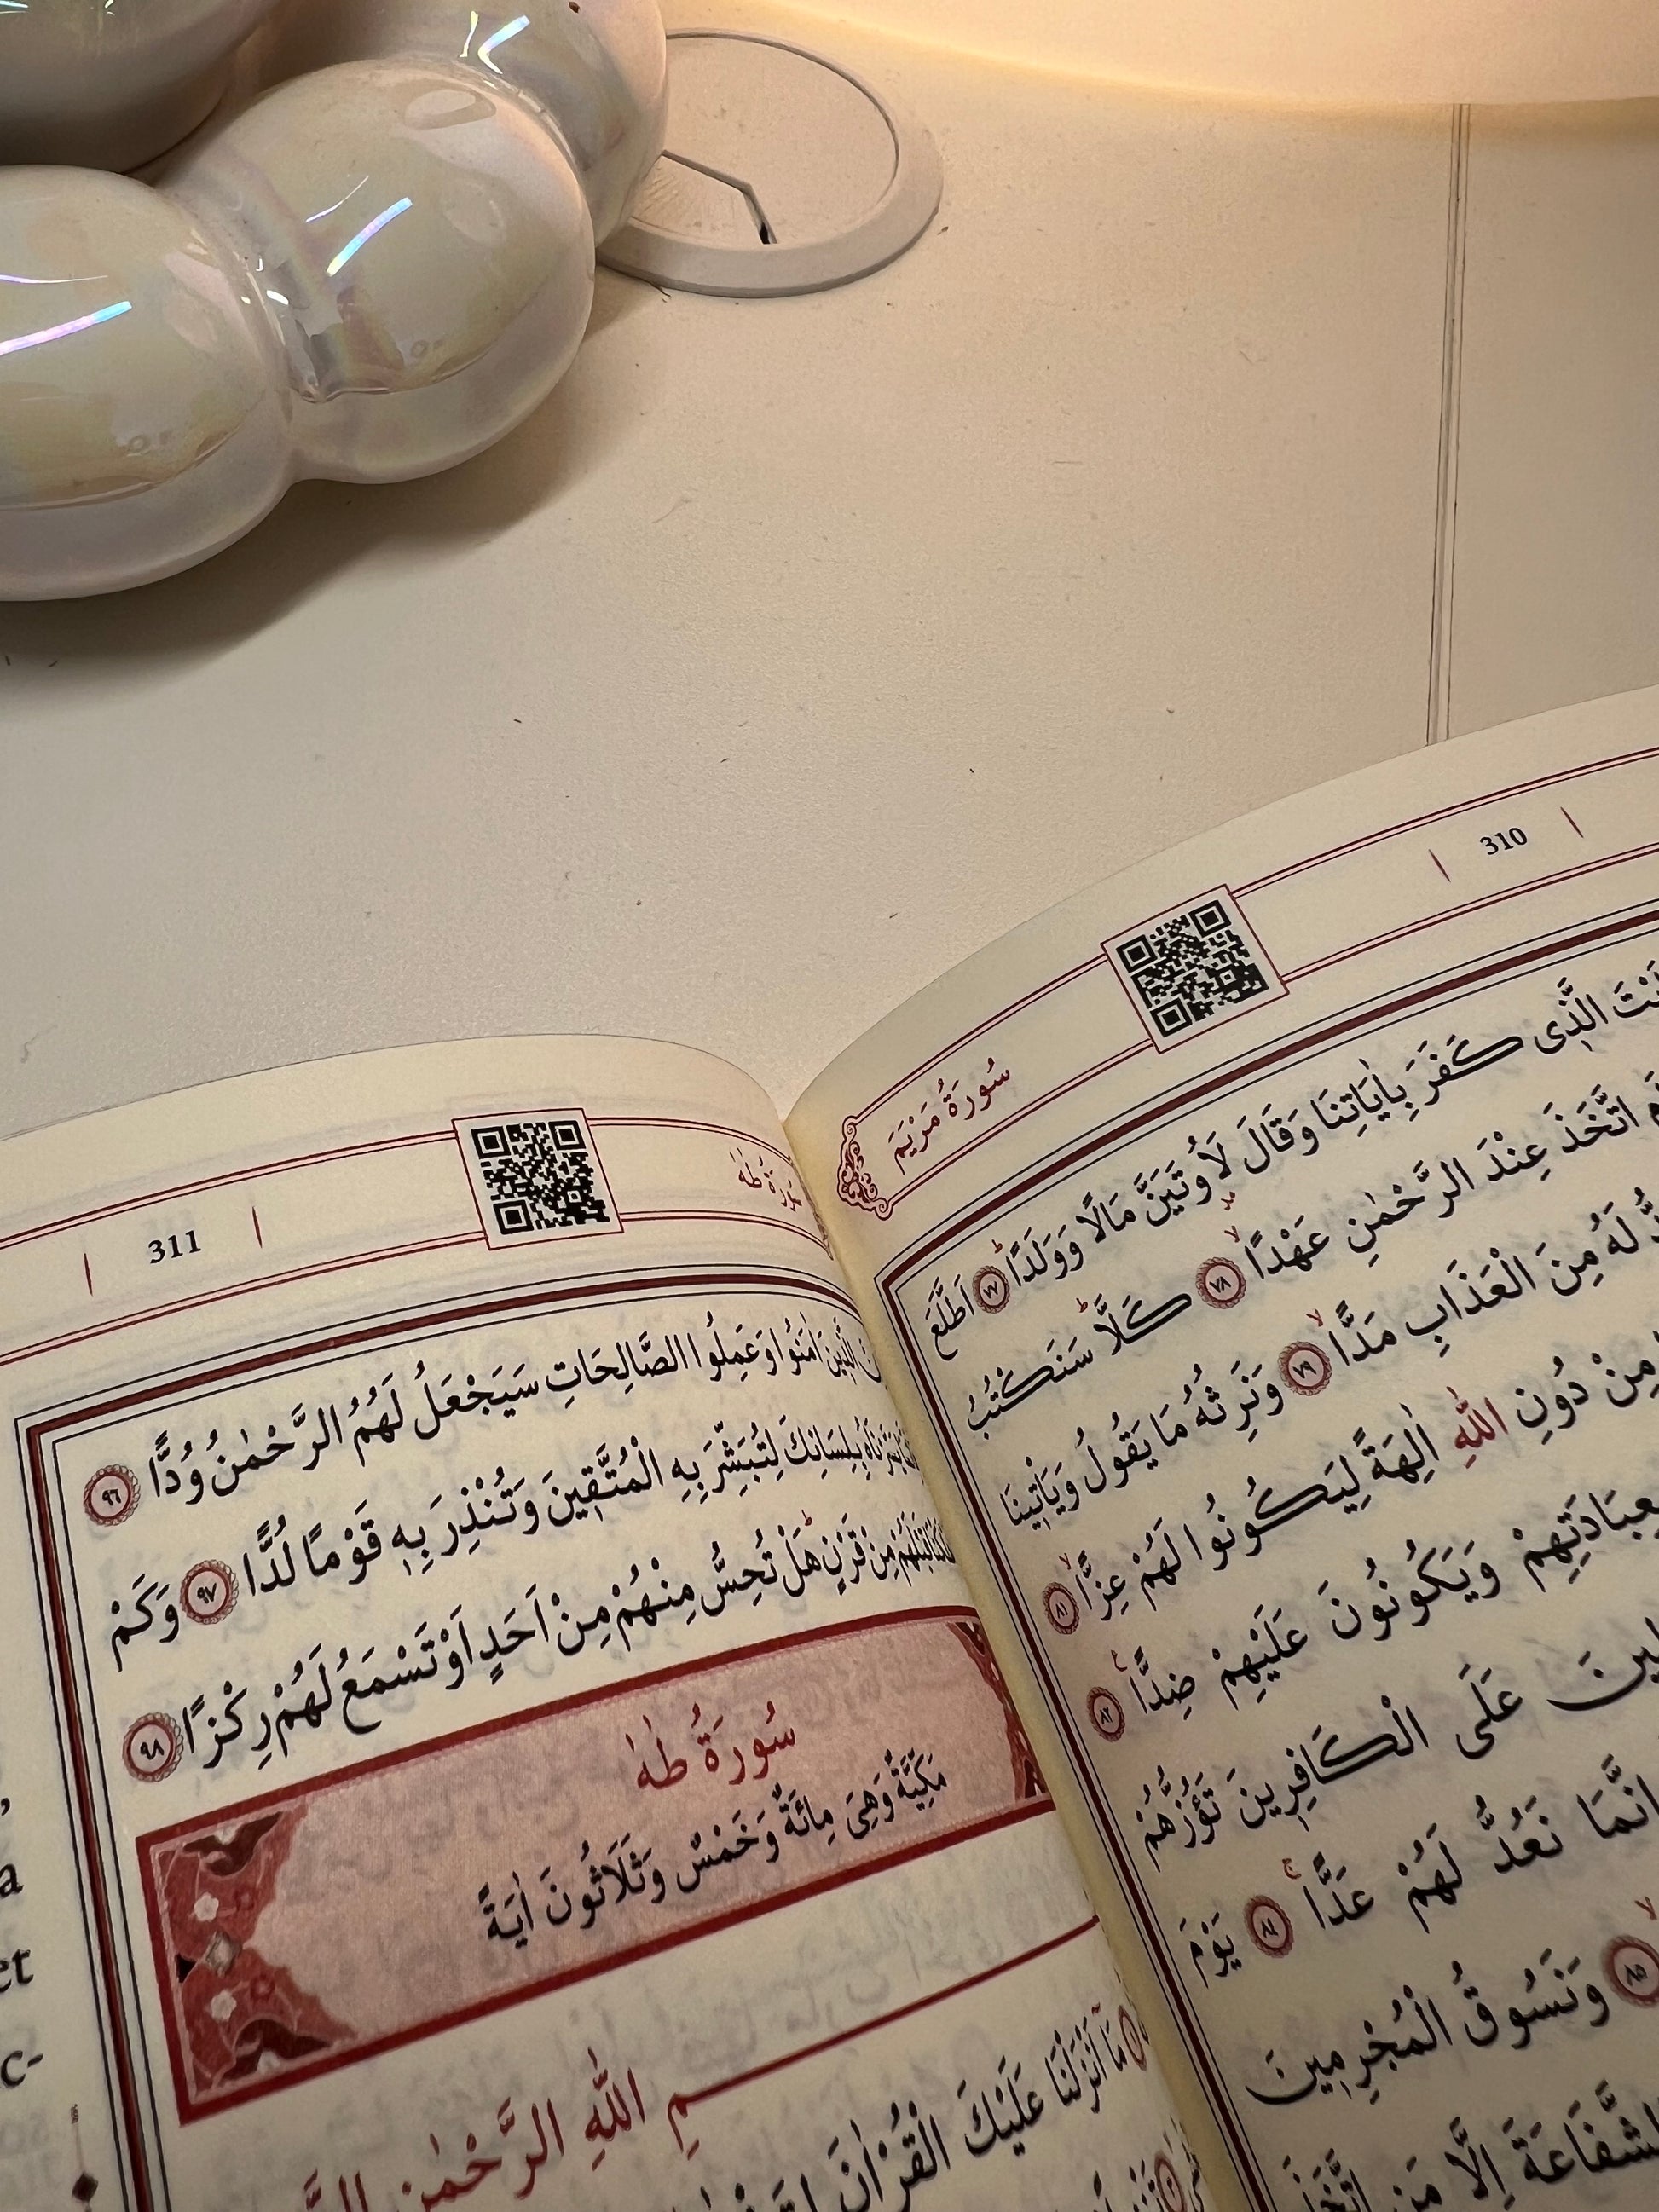 310
سُورَةُ مَرْيَمَ
الَّذٖى كَفَرَ بِاٰيَاتِنَا وَقَالَ لَاُوتَيَنَّ مَالًا وَوَلَدًاؕ ﴿٧٧﴾ اَطَّلَعَ
اتَّخَذَ عِنْدَ الرَّحْمٰنِ عَهْدًاۙ ﴿٧٨﴾ كَلَّاؕ سَنَكْتُبُ
لَهُ مِنَ الْعَذَابِ مَدًّاۙ ﴿٧٩﴾ وَنَرِثُهُ مَا يَقُولُ وَيَأْتٖينَا
مِنْ دُونِ اللّٰهِ اٰلِهَةً لِيَكُونُوا لَهُمْ عِزًّاۙ ﴿٨١﴾
بِعِبَادَتِهِمْ وَيَكُونُونَ عَلَيْهِمْ ضِدًّاࣖ ﴿٨٢﴾
عَلَى الْكَافِرٖينَ تَؤُزُّهُمْ
اِنَّمَا نَعُدُّ لَهُمْ عَدًّاۚ ﴿٨٤﴾ يَوْمَ
﴿٨٥﴾ وَنَسُوقُ الْمُجْرِمٖينَ
الشَّفَاعَةَ اِلَّا مَنِ اتَّخَذَ
311
سُورَةُ طٰهٰ
الَّذٖينَ اٰمَنُوا وَعَمِلُوا الصَّالِحَاتِ سَيَجْعَلُ لَهُمُ الرَّحْمٰنُ وُدًّا ﴿٩٦﴾
بِلِسَانِكَ لِتُبَشِّرَ بِهِ الْمُتَّقٖينَ وَتُنْذِرَ بِهٖ قَوْمًا لُدًّا ﴿٩٧﴾ وَكَمْ
قَبْلَهُمْ مِنْ قَرْنٍؕ هَلْ تُحِسُّ مِنْهُمْ مِنْ اَحَدٍ اَوْ تَسْمَعُ لَهُمْ رِكْزًا ﴿٩٨﴾
سُورَةُ طٰهٰ
مَكِّيَّةٌ وَهِىَ مِائَةٌ وَخَمْسٌ وَثَلَاثُونَ اٰيَةً
بِسْمِ اللّٰهِ الرَّحْمٰنِ
مَٓا اَنْزَلْنَا عَلَيْكَ الْقُرْاٰنَ